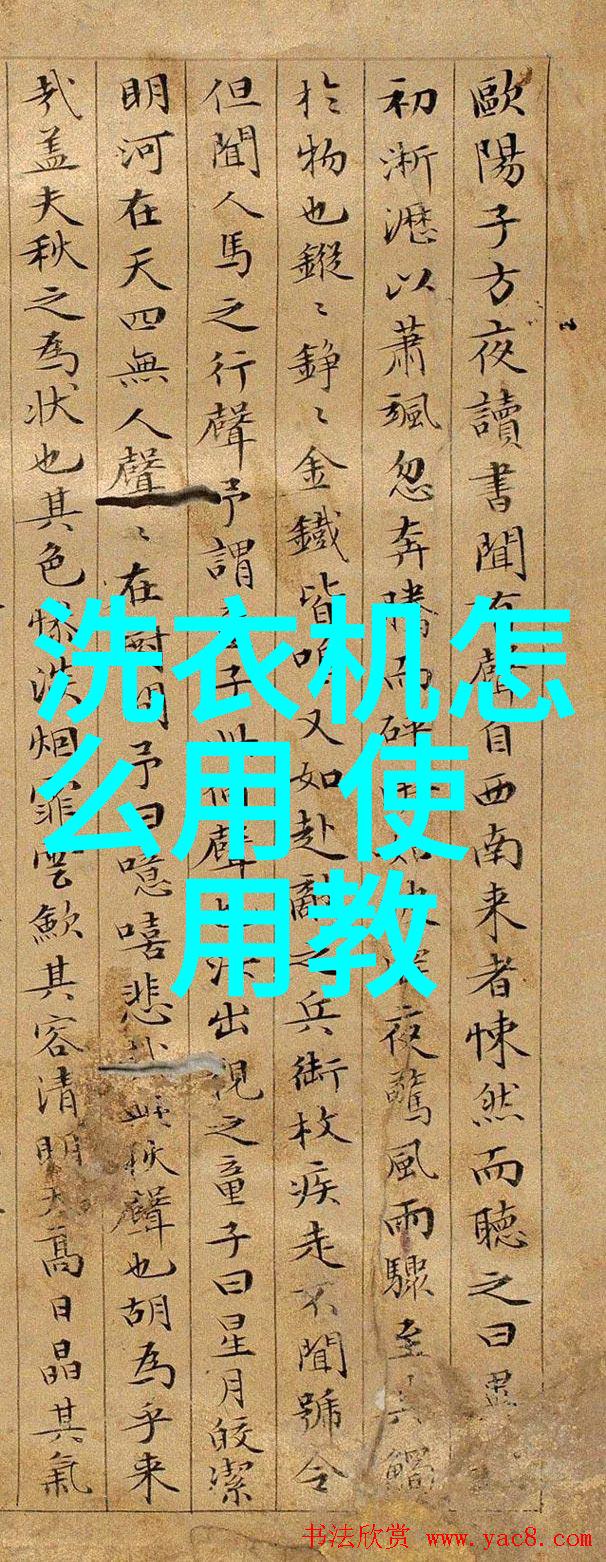 歐陽子方夜讀書聞有聲自西南来者悚然而聽之曰異
初淅瀝以蕭颯忽奔騰而砰夜驚風雨驟至其觸
於物也鏦〻錚〻金鐵皆鳴又如赴敵之兵銜枚疾走不聞號令
但聞人馬之行聲予謂子何聲也汝出視之童子曰星月皎潔
明河在天四無人聲〻在樹間予曰噫嘻悲秋聲也胡為乎来
哉盖夫秋之為状也其色惨淡烟霏雲歛其容清明天高日晶其氣
洗衣机怎
么用 使
用教
书法欣赏 www.yac8.com